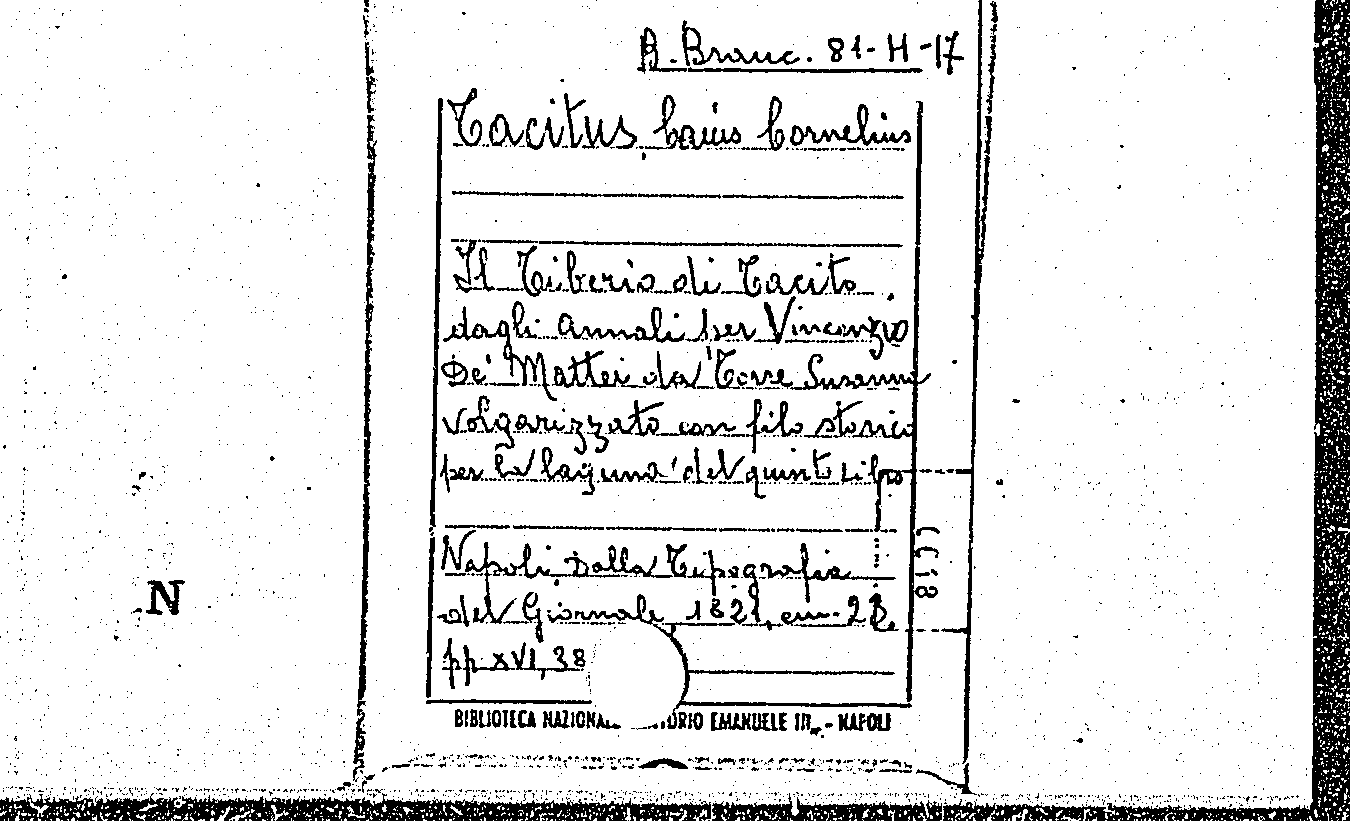 B. Branc. 81-H-17
Tacitus, Caius Cornelius
Il Tiberio di Tacito
dagli annali per Vincenzio
De' Mattei da Torre Susanna
volgarizzato con filo storico
per la laguna del quinto Libro
Napoli, Dalla Tipografia
del Giornale, 1821, cm. 23.
pp XVI, 38
CC18
N
BIBLIOTECA NAZIONAL TORIO EMANUELE III - NAPOLI